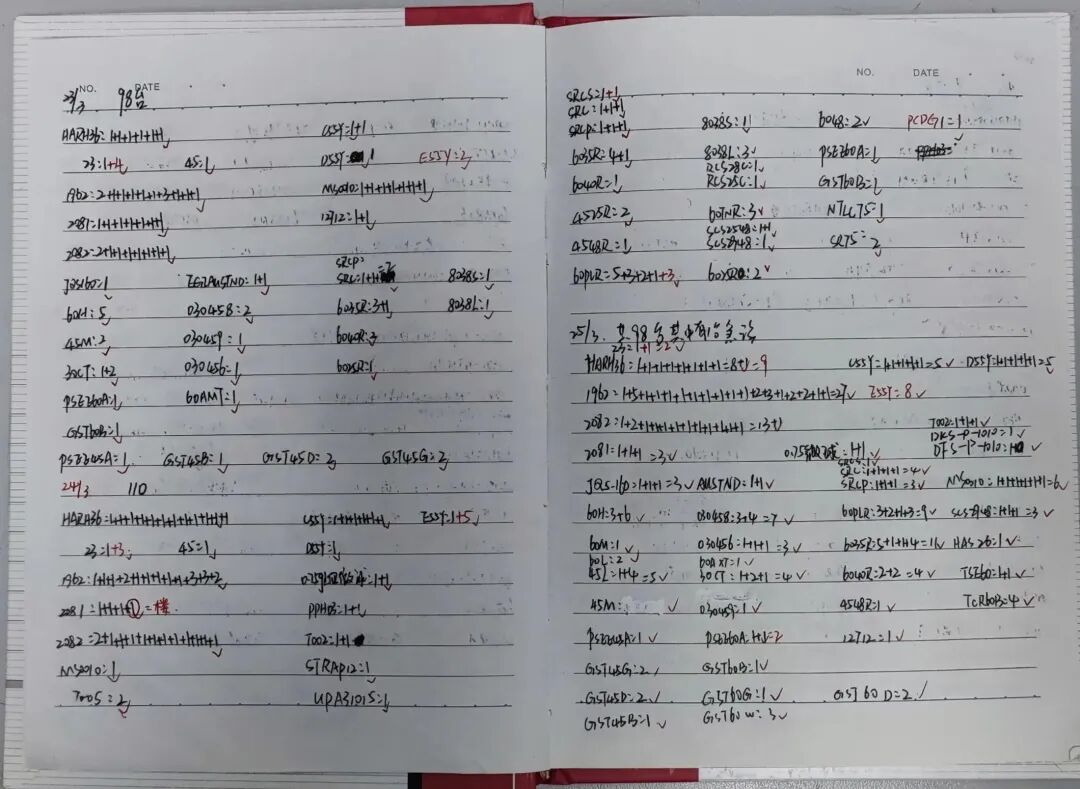 NO. DATE
23/3 98台
HARH36=1+1+1+1+1+1 CSSY=1+1
23=1+4 45=1 DSSY= 1 ESSY=2
1962=2+1+1+1+2+1+3+1+1+1 MS2010=1+1+1+1+1+1
2081=1+1+1+1+1+1 12712=1+1
2082=2+1+1+1+1+1+1
SRCP=2
JQS160=1 ZEZLAUSTND=1+1 SRC=1+1 8038S=1
60H=5 030458=2 6035R=3+1 8038L=1
45M=2 030459=1 6040R=3
30CT=1+2 030456=1 6025R=1
PSE260A=1 60AMT=1
GST60B=1
PSE345A=1 GST45B=1 GST45D=2 GST45G=2
24/3 110
HARH36=4+1+1+1+1+1+1+1+1+1 CSSY=1+1+1+1+1 ESSY=1+5
23=1+3 45=1 DSSY=1
1962=1+1+2+1+1+1+1+1+3+3+2
2081=1+1+1+1=楼 PPH03=1+1
2082=2+1+1+1+1+1+1+1+1+1 T002=1+1
MS2010=1 STRAP12=1
T005=2 UPA31015=1
NO. DATE
SRCS=1+1
SRC=1+1+1
SRCP=1+1+1 8038S=1 6048=2 PCDG1=1
6035R=4+1 8038L=3 PSE360A=1
RCS28C=1
6040R=1 RCS25C=1 GST60B=1
4525R=2 60TNR=3 NTLLTS=1
SCS2548=1+1
4548R=1 SCS2948=1 SRTS=2
60PLR=5+3+2+1+3 6025R=2
25/3. 共98台其中有1台
23=1+1=2
HARH36=1+1+1+1+1+1+1+1=8+1=9 CSSY=1+1+1+1+1=5 DSSY=1+1+1+1+1=5
1962=1+5+1+1+1+1+1+1+1+1+1+2+3+1+2+2+1+1=27 ESSY=8
2082=1+2+1+1+1+1+1+1+1+1+1+1=13+1 T002=1+1
DKS-P-1010=1
2081=1+1+1=3 0.75 =1+1 DFS-P-1010=
SRCS=1
SRC=1+1+1+1=4
JQS-160=1+1+1=3 AUSTND=1+1 SRCP=1+1+1=3 MS2010=1+1+1+1+1+1=6
60H=3+6 030458=3+4=7 60PLR=3+2+1+3=9 SCS2948=1+1+1=3
60M=1 030456=1+1+1=3 6035R=5+1+1+4=11 HAS26=1
60L=2 60AXT=1
45L=1+4=5 30CT=1+2+1=4 6040R=2+2=4 TSE60=1+1
45M= 030459=1 4548R=1 TCR60B=4
PSE345A=1 PSE260A=1+1=2 12712=1
GST45G=2 GST60B=1
GST45D=2 GST60G=1 GST60D=2
GST45B=1 GST60W=3